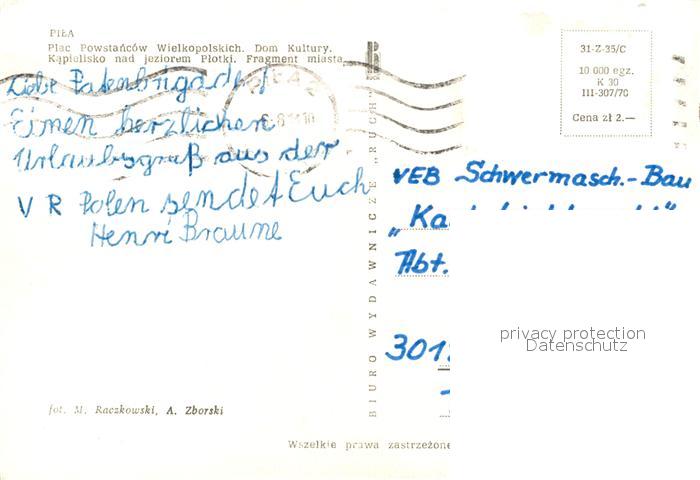 PIŁA
Plac Powstańców Wielkopolskich. Dom Kultury.
Kąpielisko nad jeziorem Płotki. Fragment miasta.
Liebe Patenbrigade!
Einen herzlichen
Urlaubsgruß aus der
V R Polen sendet Euch
Henri Braune
fot. M. Raczkowski, A. Zborski
BIURO WYDAWNICZE „RUCH"
31-Z-35/C
10 000 egz.
K 30
III-307/70
Cena zł 2.—
VEB Schwermasch.-Bau
„Ka
Abt.
301
privacy protection
Datenschutz
Wszelkie prawa zastrzeżone